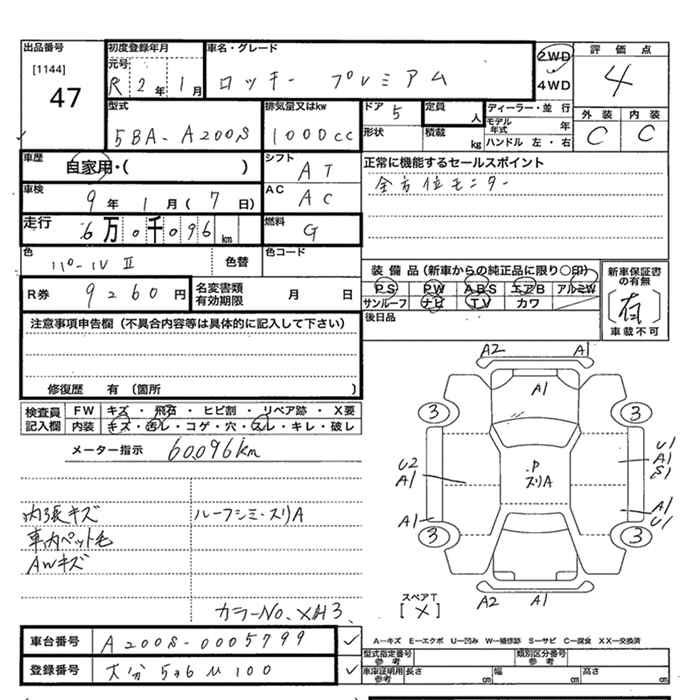 出品番号
[1144]
47
初度登録年月
元号
R 2年 1月
車名・グレード
ロッキー プレミアム
2WD
4WD
評価点
4
外装 内装
C C
型式
5BA-A200S
排気量又はkw
1000cc
ドア 5
形状
定員 人
積載 kg
ディーラー・並行
モデル年式 年
ハンドル 左・右
車歴
自家用・( )
シフト
AT
正常に機能するセールスポイント
全方位モニター
車検
9年 1月(7日)
AC
AC
走行
6万0千096km
燃料
G
色
パールⅣⅡ
色替
色コード
R券 9260円
名変書類有効期限 月 日
装備品(新車からの純正品に限り○印)
PS PW ABS エアB アルミW
サンルーフ ナビ TV カワ
後日品
新車保証書の有無
(有)
車載不可
注意事項申告欄(不具合内容等は具体的に記入して下さい)
修復歴 有(箇所 )
検査員記入欄
FW キズ・飛石・ヒビ割・リペア跡・X要
内装 キズ・汚レ・コゲ・穴・スレ・キレ・破レ
メーター指示 60,096km
内張キズ
車内ペット毛
AWキズ
ルーフシミ・スリA
カラーNo. XH3
A2 A1
A1
3 3
U2
A1
P
スリA
U1
A1
S1
A1
A1
U1
3 3
スペアT
[X]
A2 A1
車台番号 A200S-0005799
登録番号 大分 5 M 100
A-キズ E-エクボ U-凹み W-補修跡 S-サビ C-腐食 XX-交換済
型式指定番号 参考
類別区分番号 参考
車庫証明用 参考 長さ cm 幅 cm 高さ cm